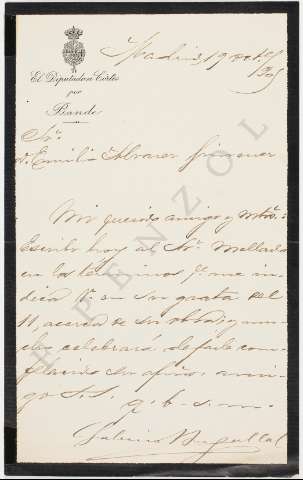 El Diputado a Córtes
por
Bande
Madrid 19
Sr.
D. Emilio Alvarez Gimenez
Mi querido amigo y
Escribo hoy al Sr. Mellado
en los términos q. me in-
dica V. en su grata del
11, acerca de su obra y mu-
cho celebrará dejarle com-
placido su afmo. ami-
go S.S.
q. b. s. m.
Gabino Bugallal
PENZOL